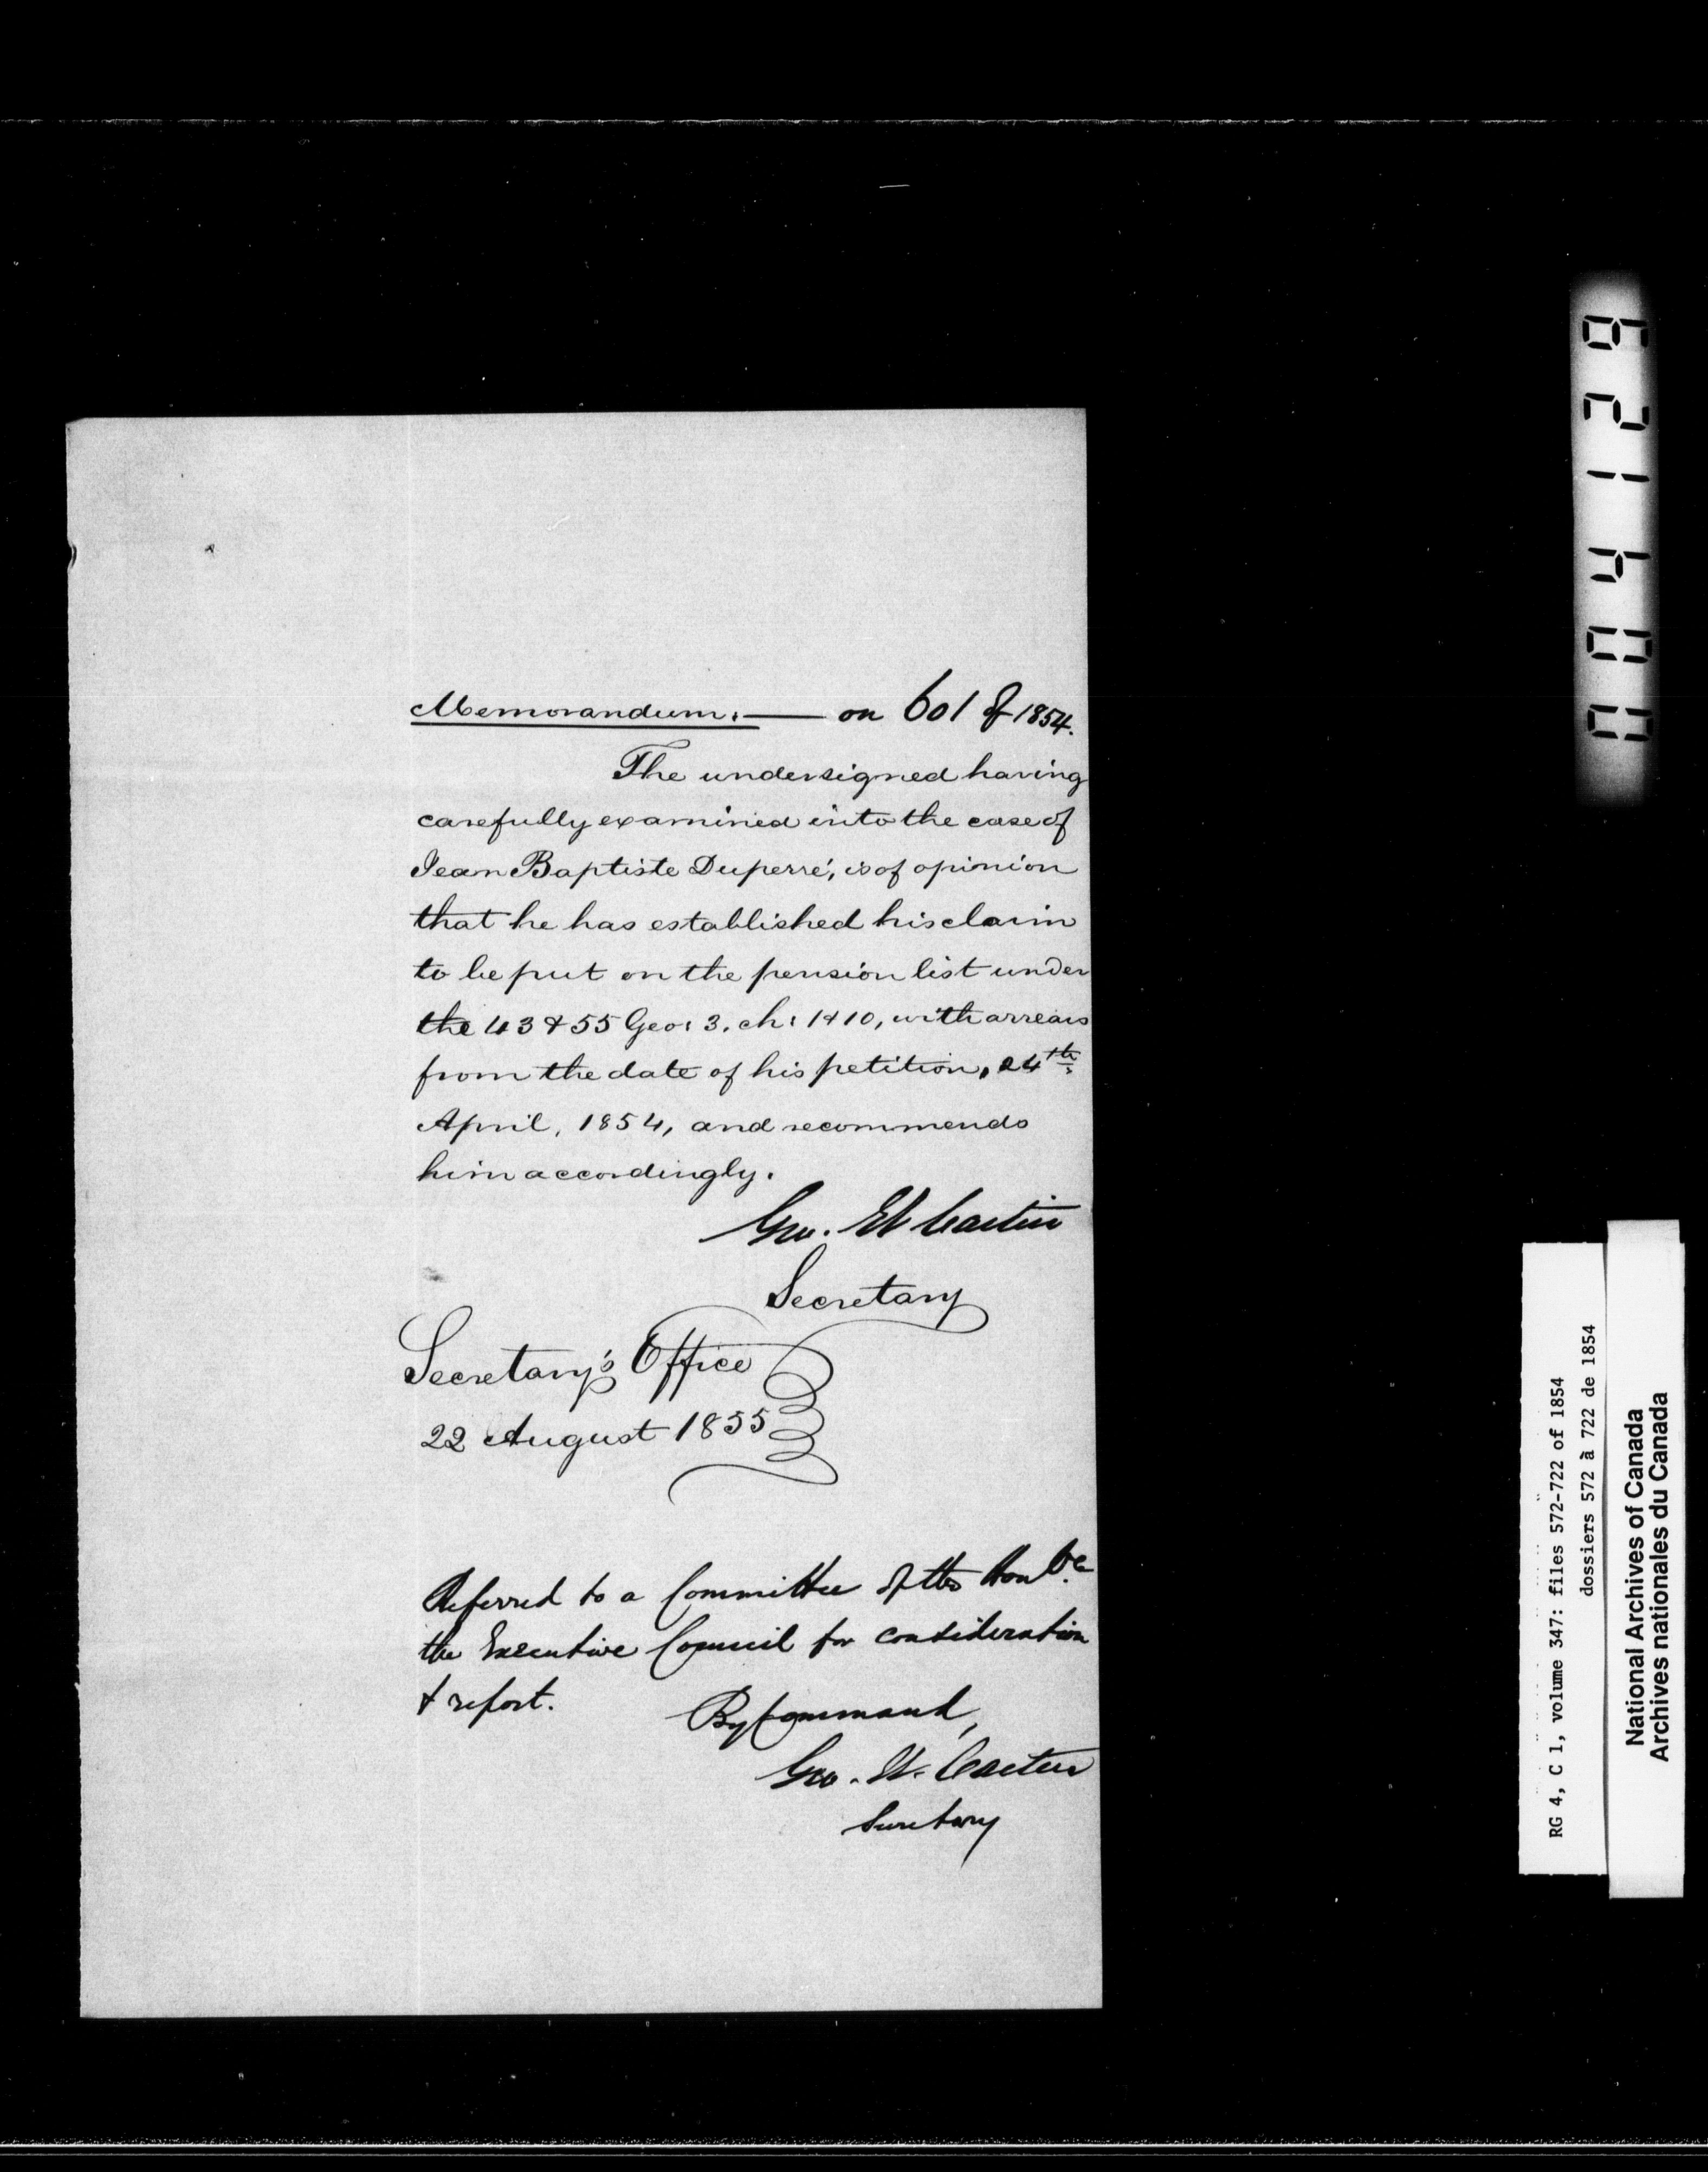 Memorandum. — on 601 of 1854.
The undersigned having
carefully examined into the case of
Jean Baptiste Duperré, is of opinion
that he has established his claim
to be put on the pension list under
the 43 & 55 Geo: 3. ch: 1 & 10, with arrears
from the date of his petition, 24th
April, 1854, and recommends
him accordingly.
Geo. Et Cartier
Secretary
Secretary's Office
22 August 1855
Referred to a Committee of the Honble
the Executive Council for consideration
& report.
By Command,
Geo. Et. Cartier
Secretary
004129
RG 4, C 1, volume 347: files 572-722 of 1854
dossiers 572 à 722 de 1854
National Archives of Canada
Archives nationales du Canada